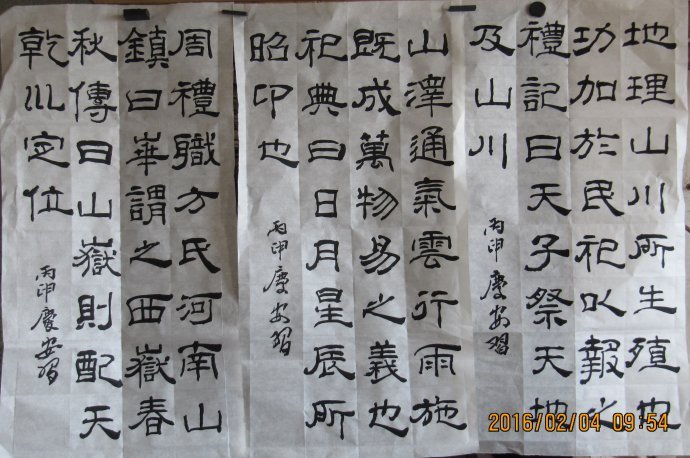 周禮職方氏河南山
鎮曰崋謂之西嶽春
秋傳曰山嶽則配天
乾川定位
丙申慶安習
山澤通氣雲行雨施
既成萬物易之義也
祀典曰日月星辰所
昭卬也
丙申慶安習
地理山川所生殖也
功加於民祀以報之
禮記曰天子祭天地
及山川
丙申慶安習
2016/02/04 09:54